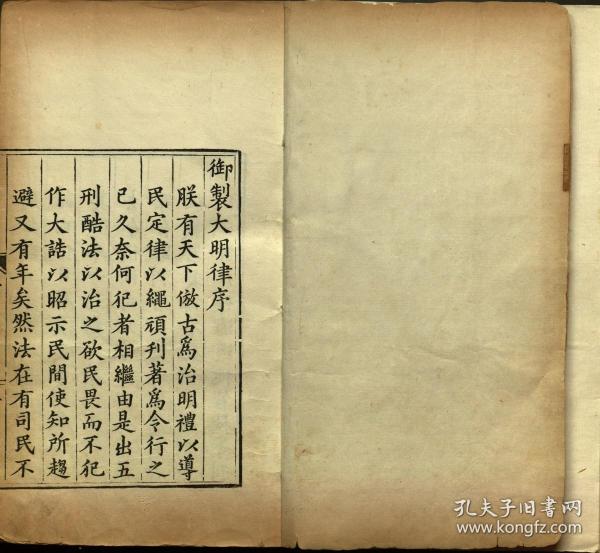 御製大明律序
朕有天下倣古爲治明禮以導
民定律以繩頑刋著爲令行之
已久奈何犯者相繼由是出五
刑酷法以治之欲民畏而不犯
作大誥以昭示民間使知所趨
避又有年矣然法在有司民不
孔夫子旧书网
www.kongfz.com